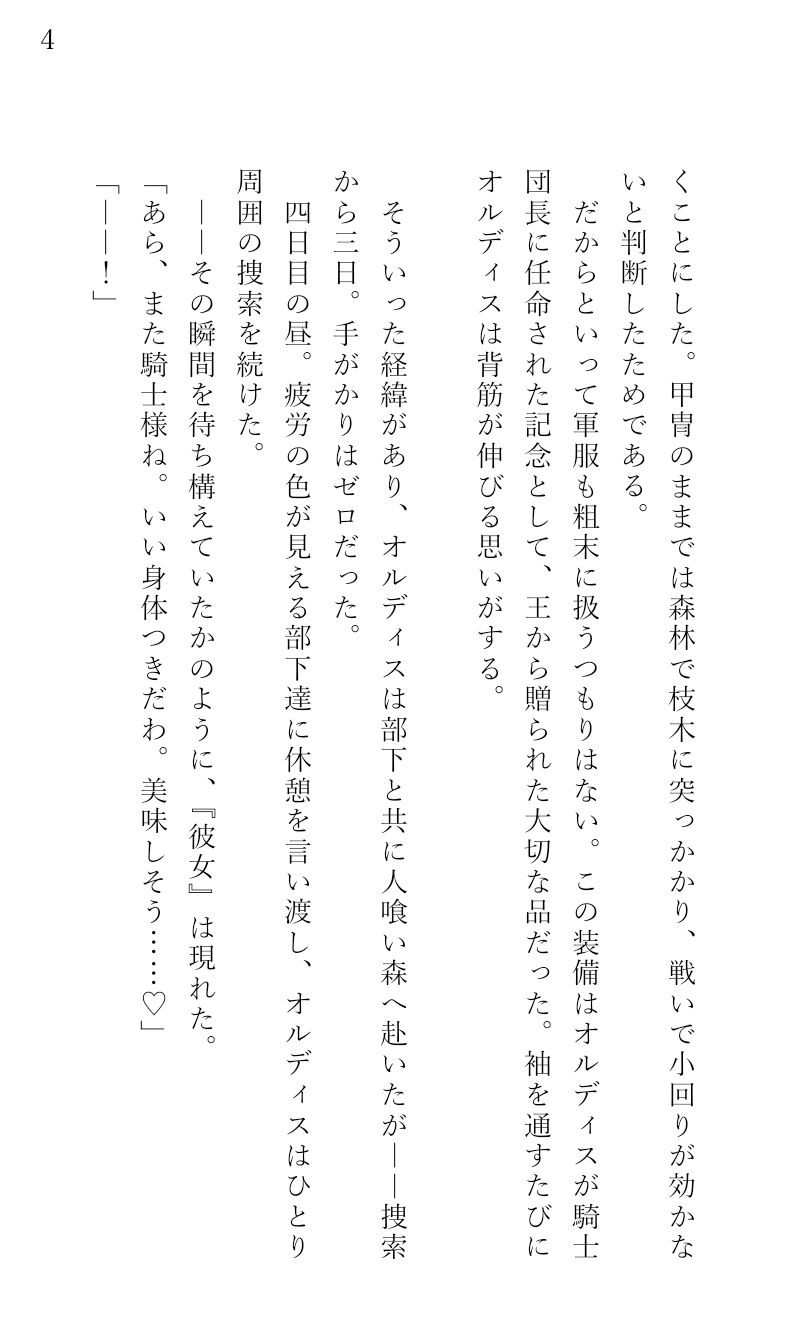 4
くことにした。甲冑のままでは森林で枝木に突っかかり、戦いで小回りが効かな
いと判断したためである。
　だからといって軍服も粗末に扱うつもりはない。この装備はオルディスが騎士
団長に任命された記念として、王から贈られた大切な品だった。袖を通すたびに
オルディスは背筋が伸びる思いがする。
　そういった経緯があり、オルディスは部下と共に人喰い森へ赴いたが——捜索
から三日。手がかりはゼロだった。
　四日目の昼。疲労の色が見える部下達に休憩を言い渡し、オルディスはひとり
周囲の捜索を続けた。
　——その瞬間を待ち構えていたかのように、『彼女』は現れた。
「あら、また騎士様ね。いい身体つきだわ。美味しそう……♡」
「——！」